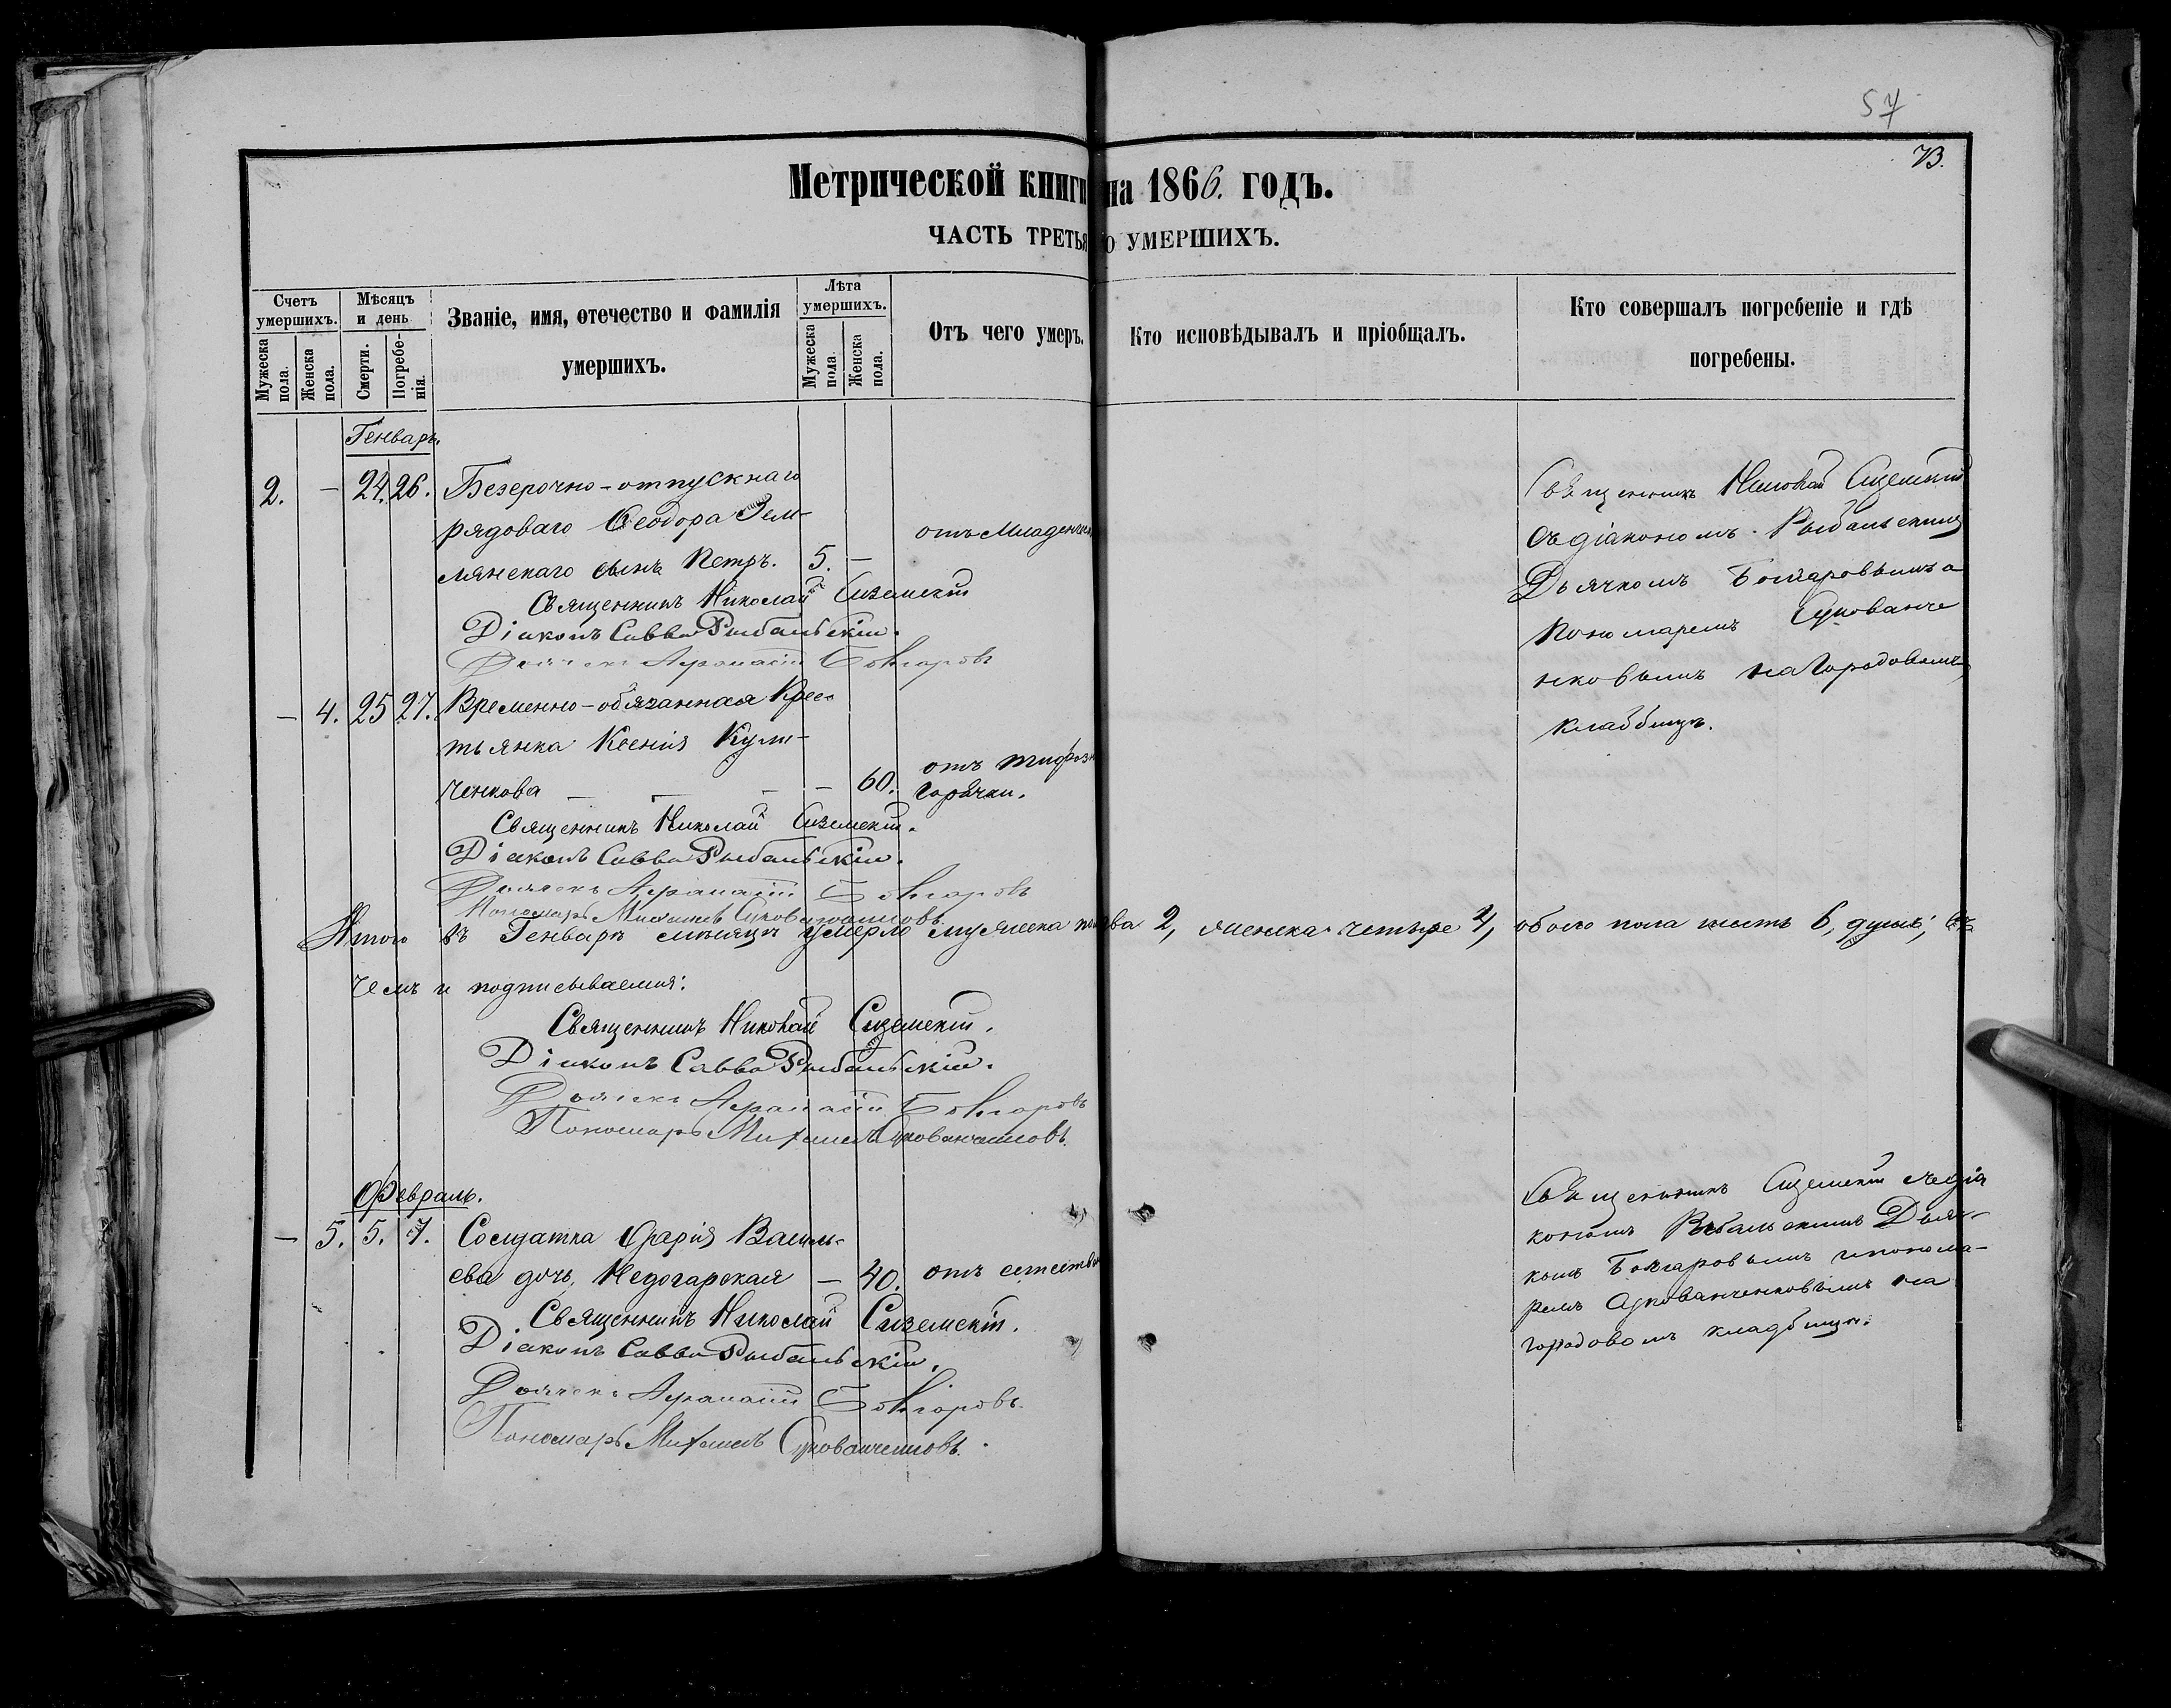 57
73.
Метрической книги на 1866. годъ.
ЧАСТЬ ТРЕТЬЯ О УМЕРШИХЪ.
Счетъ умершихъ.
Мужеска пола.
Женска пола.
Мѣсяцъ и день
Смерти.
Погребе-нія.
Званіе, имя, отечество и фамилія
умершихъ.
Лѣта умершихъ.
Мужеска пола.
Женска пола.
Отъ чего умеръ.
Кто исповѣдывалъ и пріобщалъ.
Кто совершалъ погребеніе и гдѣ
погребены.
Генварь.
2. — 24. 26. Безсрочно-отпускнаго
рядоваго Ѳеодора Зем-
лянскаго сынъ Петръ. 5. —
отъ Младенчес
Священникъ Николай Сиземскій
Діаконъ Савва Рыбальскій.
Дьячекъ Аѳанасій Болгаровъ
Священникъ Николай Сиземскій
съ діакономъ Рыбальскимъ
Дьячкомъ Болгаровымъ и
Пономаремъ
нковымъ на Городовомъ
кладбищѣ.
— 4. 25 27. Временно-обязанная Крес-
тьянка Ксенія Кули-
ченкова — — — — 60.
отъ тифозн
горячки.
Священникъ Николай Сиземскій.
Діаконъ Савва Рыбальскій.
Дьячекъ Аѳанасій Болгаровъ
Пономарь Михаилъ
Итого въ Генварѣ мѣсяцѣ умерло мужеска пола два 2, женска четыре 4, обоего пола шесть 6, душъ; въ
чемъ и подписываемся:
Священникъ Николай Сиземскій.
Діаконъ Савва Рыбальскій.
Дьячекъ Аѳанасій Болгаровъ
Пономарь Михаилъ
Февраль.
— 5. 5. 7. Солдатка Василь-
ева дочь, Недогарская — 40.
отъ естестве
Священникъ Николай Сиземскій.
Діаконъ Савва Рыбальскій.
Дьячекъ Аѳанасій Болгаровъ.
Пономарь Михаилъ
Священникъ Сиземскій съ діа
кономъ Рыбальскимъ Дьяч-
комъ Болгаровымъ и понома-
ремъ на
городовомъ кладбищѣ.